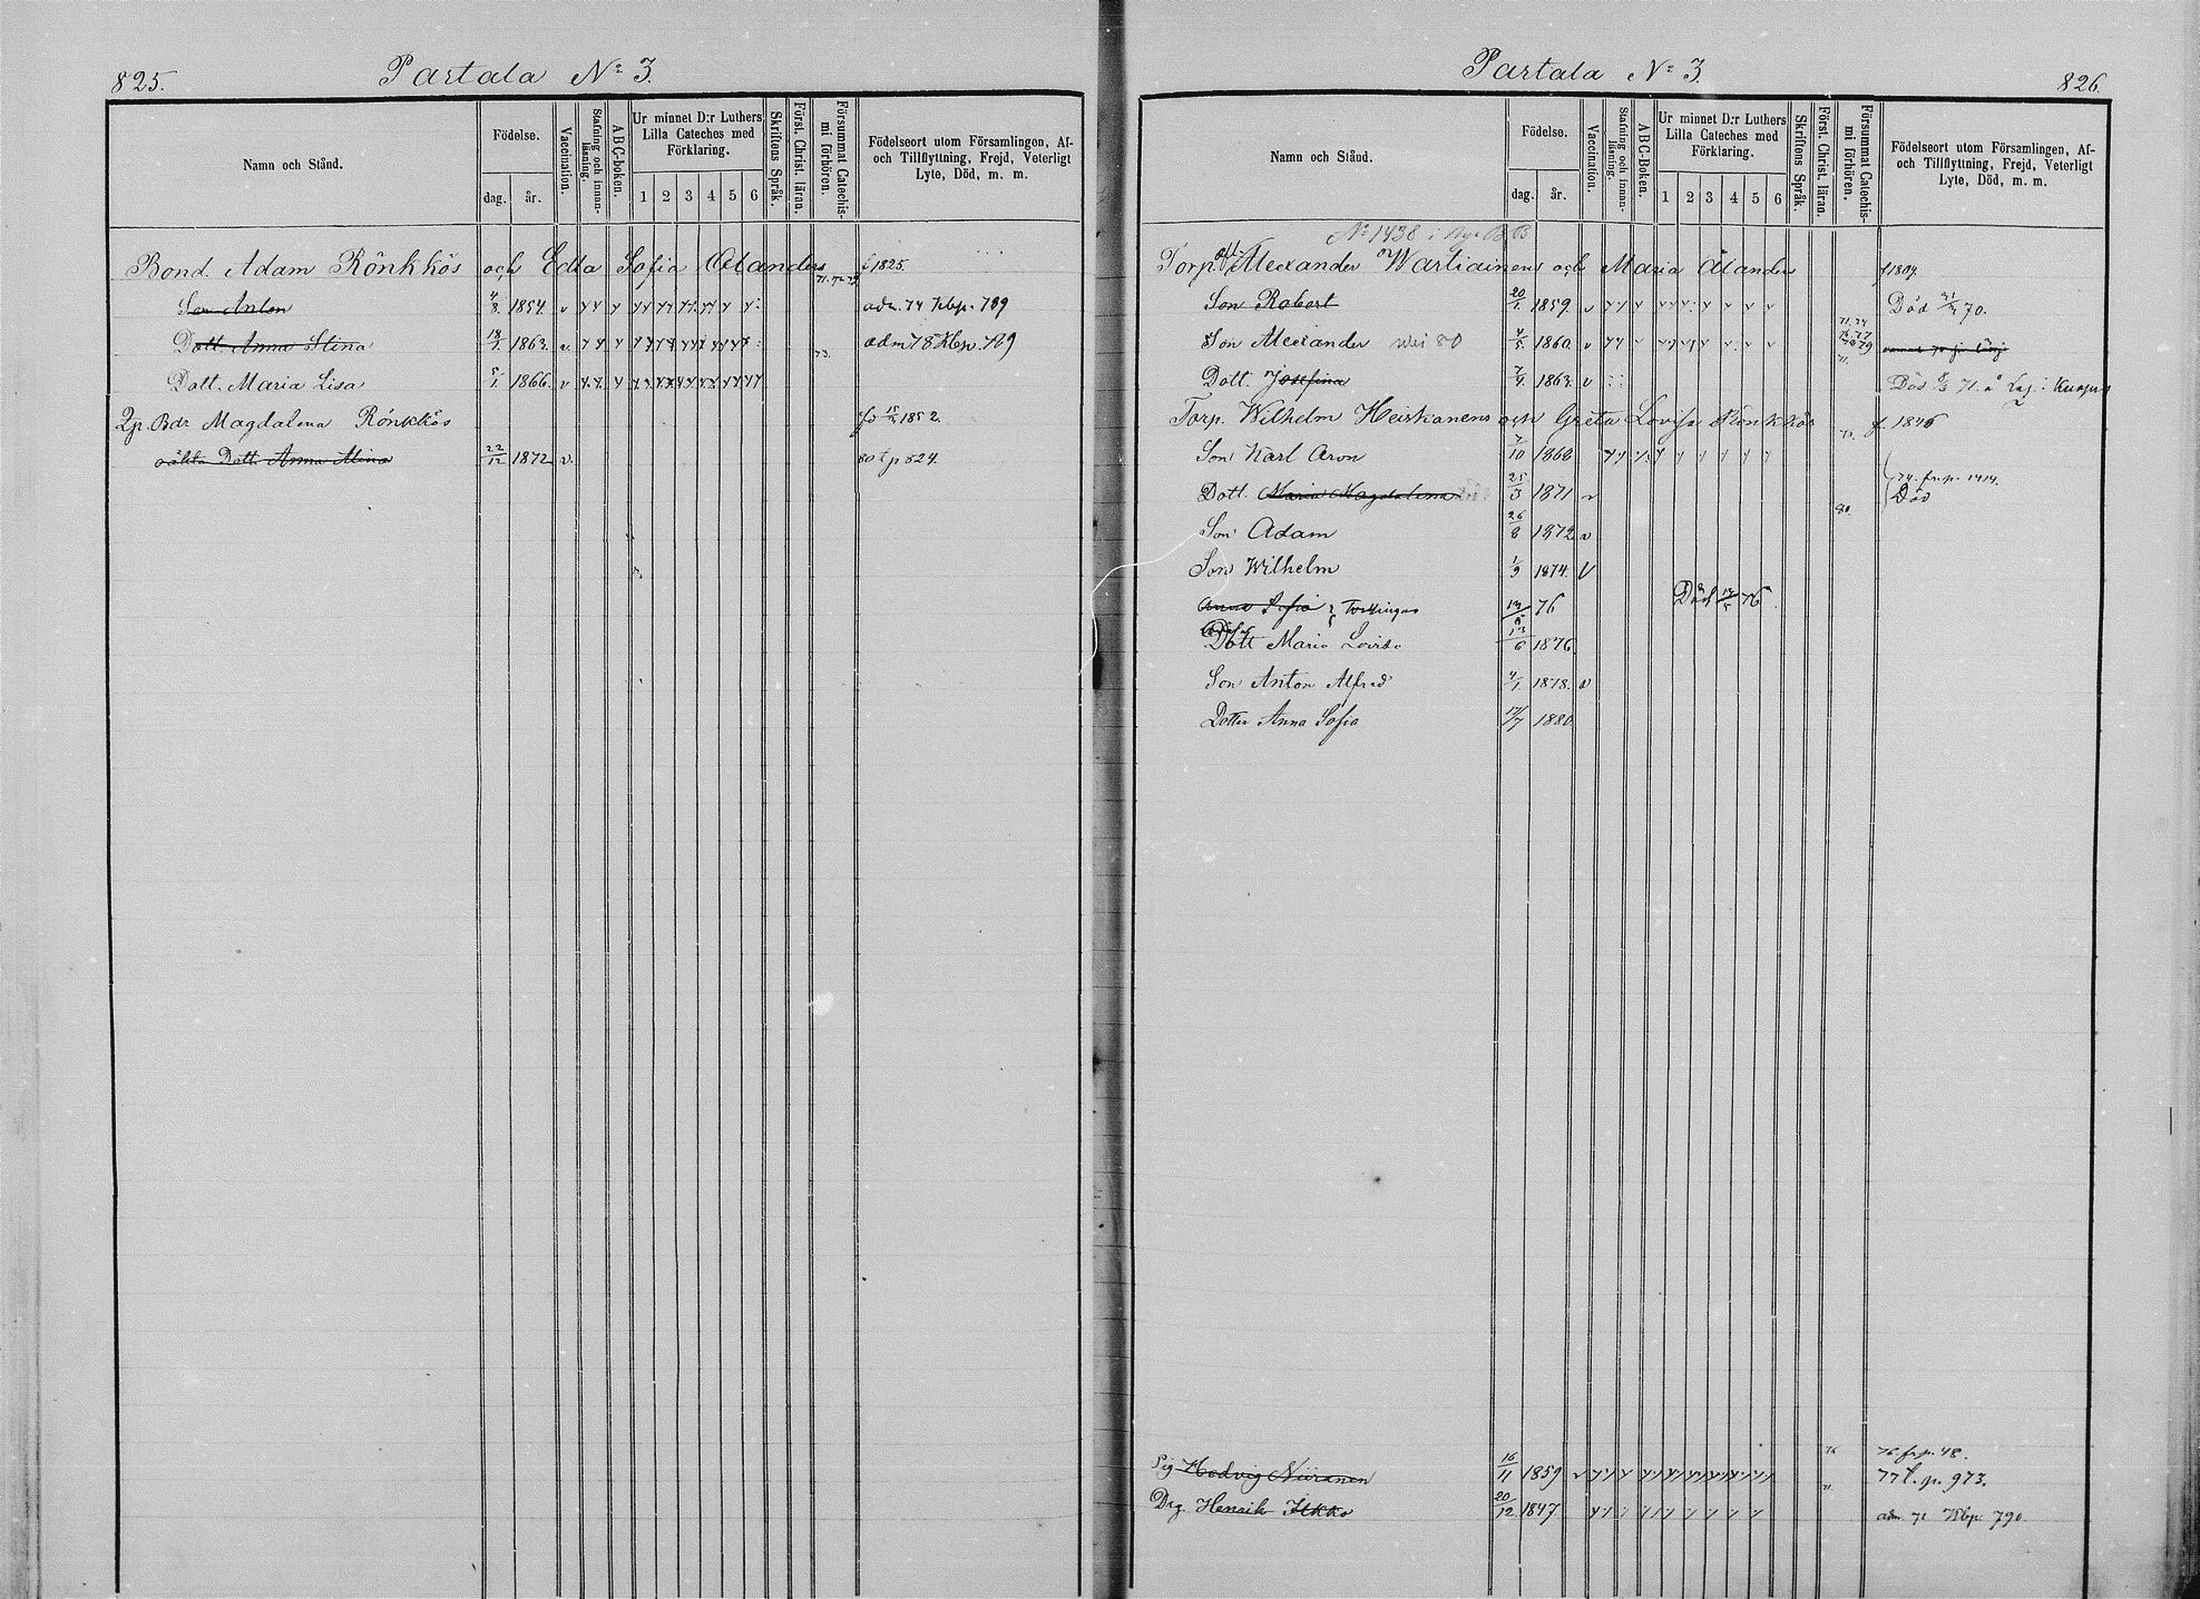 825.
Partala No 3.
Namn och Stånd.
Födelse.
dag.
år.
Vaccination.
Stafning och innan-
läsning.
ABC-boken.
Ur minnet D:r Luthers
Lilla Cateches med
Förklaring.
1 2 3 4 5 6
Skriftens Språk.
Först. Christ. läran.
Försummat Catechis-
mi förhören.
Födelseort utom Församlingen, Af-
och Tillflyttning, Frejd, Veterligt
Lyte, Död, m. m.
Bond. Adam Rönkkös och Edla Sofia Olanders 71. 72 f 1825.
Son Anton 4/3 1854. adm. 74 Kbp. 789
Dott. Anna Stina 18/1 1863. 73. adm 78 Kbp. 789
Dott. Maria Lisa 5/1 1866.
Magdalena Rönkkös 1852.
oäkta Dott. Anna Mina 22/12 1872 v. 80 t p 824.
Partala No 3.
826.
Namn och Stånd.
Födelse.
dag.
år.
Vaccination.
Stafning och innan-
läsning.
ABC-Boken.
Ur minnet D:r Luthers
Lilla Cateches med
Förklaring.
1 2 3 4 5 6
Skriftens Språk.
Först. Christ. läran.
Försummat Catechis-
mi förhören.
Födelseort utom Församlingen, Af-
och Tillflyttning, Frejd, Veterligt
Lyte, Död, m. m.
No 1438 i
Torp. Alexander Wartiainens och Maria Ålanders f 1809.
Son Robert 20/1 1859. v Död 70.
Son Alexander 80 4/5 1860. v
Dott. Josefina 7/4 1863. v Död 71. i Kuopio
Torp. Wilhelm Heiskanens och Greta Lovisa Rönkkös f. 1846
Son Karl Aron 7/10 1868
Dott. Maria Magdalena 25/3 1871 v 74. fr. p. 1414.
Död
Son Adam 26/8 1872 v 80.
Son Wilhelm 1/9 1874. V
Anna Sofia Tvillingar 76 Död 76
Dott Maria Lovisa 13/6 1876.
Son Anton Alfred 4/1 1878. v
Dotter Anna Sofia 17/7 1880
76 76. fr. p. 48.
Pig Hedvig Niiranen 16/11 1859 v 77 t. p. 973.
Drg. Henrik Ikko 20/12 1847. 71. adm. 71 Kbp. 790